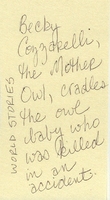 Becky
Cozzarelli,
the Mother
Owl, cradles
the owl
baby who
was killed
in an
accident.
WORLD STORIES